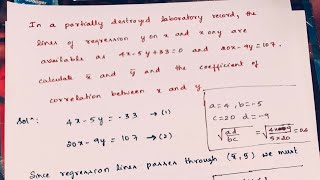 In a partially destroyed laboratory record, the
lines of regression y on x and x on y are
available as 4x-5y+33=0 and 20x-9y=107.
calculate x̄ and ȳ and the coefficient of
correlation between x and y.
Solⁿ: 4x-5y = -33 → (1)
20x-9y = 107 → (2)
a=4, b=-5
c=20 d=-9
√(ad/bc) = √(4x-9/-5x20) = 0.6
Since regression lines passes through (x̄, ȳ) we must